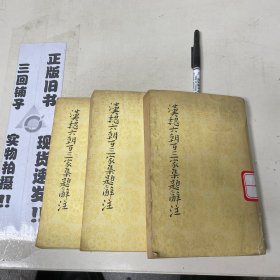 正版旧书
现货速发!!
三回铺子
实物拍摄!!
漢魏六朝百三家集題辭注
漢魏六朝百三家集題辭注
漢魏六朝百三家集題辭注